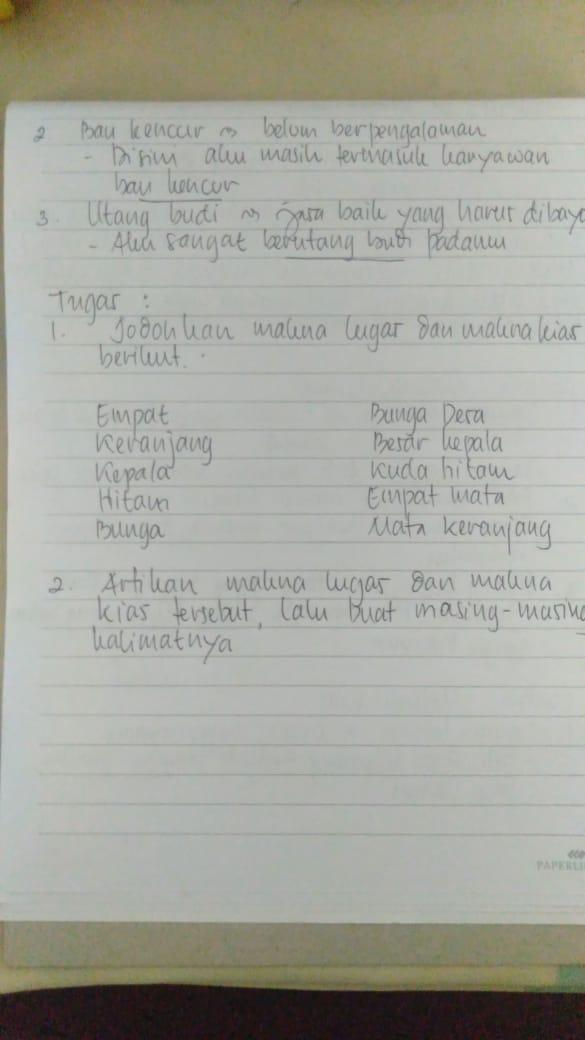 2 Bau kencur → belum berpengalaman
- Disini aku masih termasuk karyawan
bau kencur
3. Utang budi → jasa baik yang harus dibaya
- Aku sangat berutang budi padamu
Tugas :
1. Jodohkan makna lugas dan makna kias
berikut.
Empat Bunga Desa
Keranjang Besar kepala
Kepala Kuda hitam
Hitam Empat mata
Bunga Mata keranjang
2. Artikan makna lugas dan makna
kias tersebut, lalu buat masing-masing
kalimatnya
PAPERLI